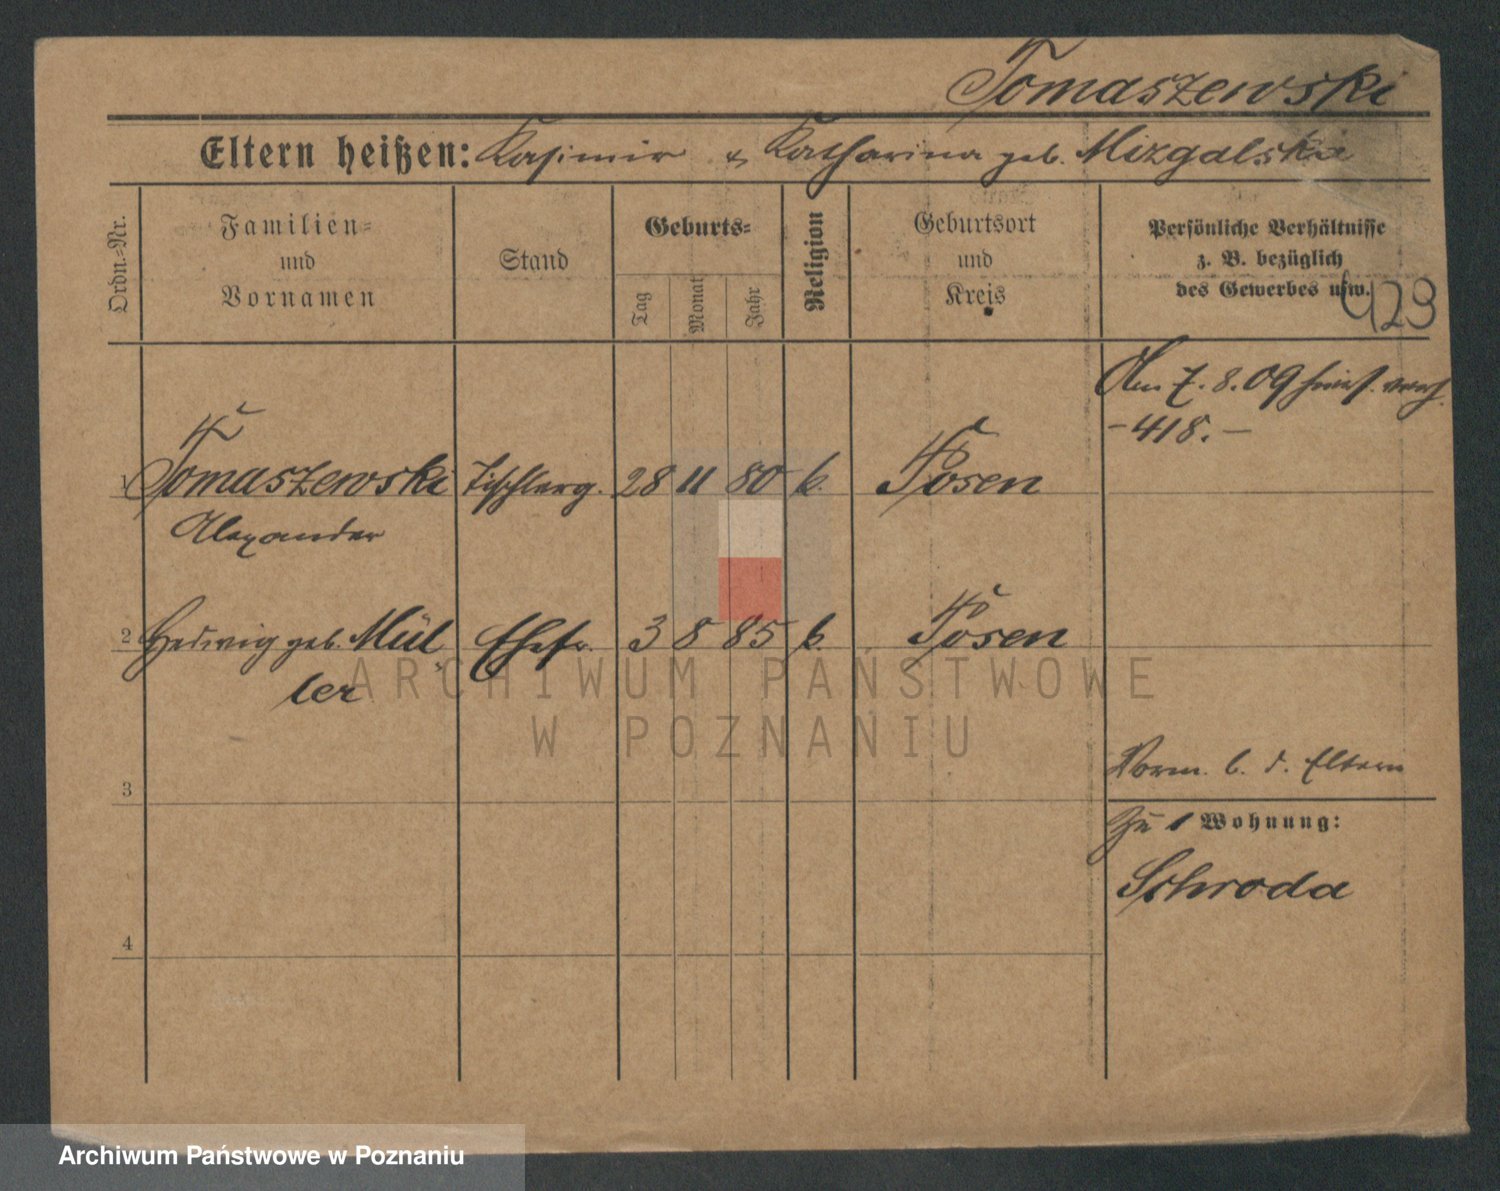 Tomaszewski
Eltern heißen: Kasimir & Katharina geb. Mizgalska
Ordn.-Nr.
Familien-
und
Vornamen
Stand
Geburts-
Tag
Monat
Jahr
Religion
Geburtsort
und
Kreis
Persönliche Verhältnisse
z. B. bezüglich
des Gewerbes usw.
423
Am 7. 8. 09
-418.-
1 Tomaszewski Tischlerg. 28 11 80 k. Posen
Alexander
2 Hedwig geb. Mül- Ehefr. 3 8 85 k. Posen
ler
ARCHIWUM PAŃSTWOWE
W POZNANIU
Vorm. b. d. Eltern
3
Zu 1 Wohnung:
Schroda
4
Archiwum Państwowe w Poznaniu